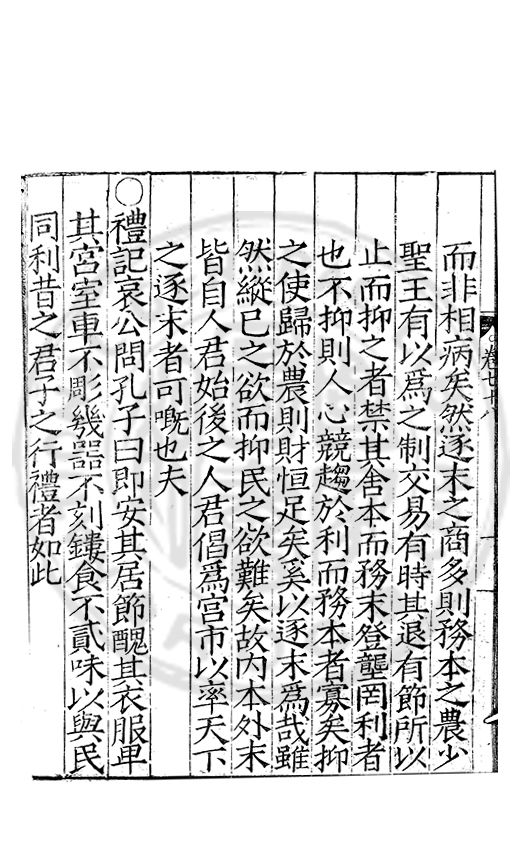 卷七十八
而非相病矣然逐末之商多則務本之農少
聖王有以爲之制交易有時其退有節所以
止而抑之者禁其舍本而務末登壟罔利者
也不抑則人心競趨於利而務本者寡矣抑
之使歸於農則財恒足矣奚以逐末爲哉雖
然縱已之欲而抑民之欲難矣故内本外末
皆自人君始後之人君倡爲宫市以率天下
之逐末者可嘅也夫
○禮記哀公問孔子曰即安其居節醜其衣服卑
其宫室車不彫幾器不刻鏤食不貳味以與民
同利昔之君子之行禮者如此